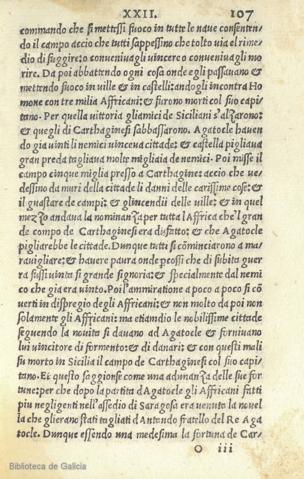 XXII. 107
commando che si mettessi fuoco in tutte le naue consenten/
do il campo accio che tutti sappessino che tolto uia el rime/
dio di fuggire: o conueniuagli uincere o conueniuagli mo
rire. Da poi abbattendo ogni cosa onde egli passauano &
mettendo fuoco in uille & in castelli: andogli incontra Ho
mone con tre milia Affricani: & furono morti col suo capi/
tano. Per quella uittoria gliamici de Siciliani s'alzarono: &
& quegli di Carthaginesi sabbassarono. Agatocle hauen
do gia uinti le nemici uinceua cittade: & castella pigliaua
gran preda tagliaua molte migliaia de nemici. Poi misse il
campo cinque miglia presso a Carthagine: accio che ue/
dessino da muri della cittade li danni delle carissime cose: &
il guastare de campi: & glincendii delle uille: & in quel
mezzo andaua la nominanza per tutta l'Affrica che'l gran
de campo de Carthaginesi era disfatto: & che Agatocle
pigliarebbe le cittade. Dunque tutti si cōminciarono a ma/
rauigliare: & hauere paura onde
che di subita guer
ra fussi uinta si grande signoria: & spetialmente dal nemi
co che gia era uinto. Poi l'ammiratione a poco a poco si cō
uerti in dispregio degli Affricani: & non molto da poi non
solamente gli Affricani: ma etiamdio le nobilissime cittade
seguendo la nouita si dauano ad Agatocle & forniuano
lui uincitore di formento: & di danari: & con questi mali
su morto in Sicilia il campo de Carthaginesi col suo capi/
tano. Et questo saggionse come una adunanza delle sue for
tune: per che dopo la partita d'Agatocle gli Affricani fatti
piu negligenti nell'assedio di Saragosa era uenuta la nouel
la che glierano stati tagliati d'Antondo fratello del Re Aga
tocle. Dunque essendo una medesima la fortuna de Car/
O iii
Biblioteca de Galicia